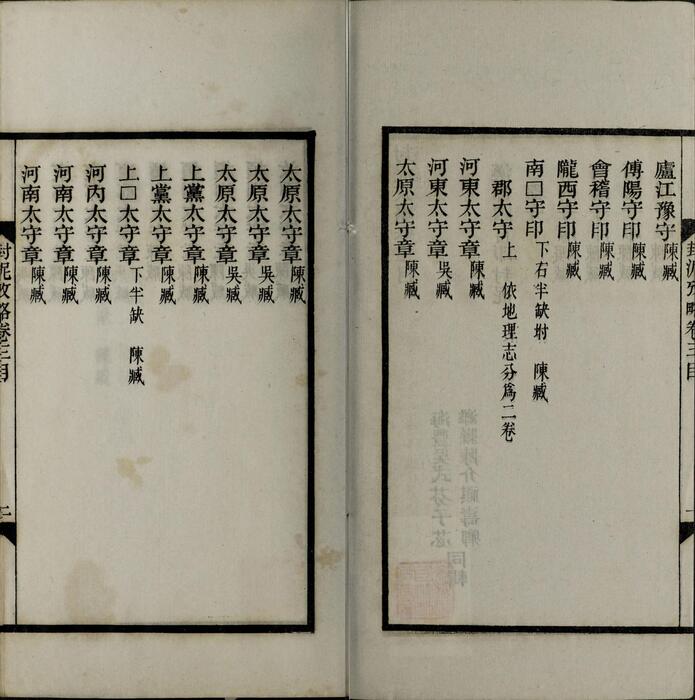 封泥攷略卷三目
一
廬江豫守 陳臧
傅陽守印 陳臧
會稽守印 陳臧
隴西守印 陳臧
南□守印 下右半缺坿 陳臧
郡太守上 依地理志分爲二卷
河東太守章 陳臧
河東太守章 吳臧
太原太守章 陳臧
太原太守章 陳臧
太原太守章 吳臧
太原太守章 吳臧
上黨太守章 陳臧
上黨太守章 陳臧
上□太守章 下半缺 陳臧
河內太守章 陳臧
河南太守章 陳臧
河南太守章 陳臧
封泥攷略卷三目
二
濰縣陳介祺壽卿
海豐吳式芬子苾
同輯